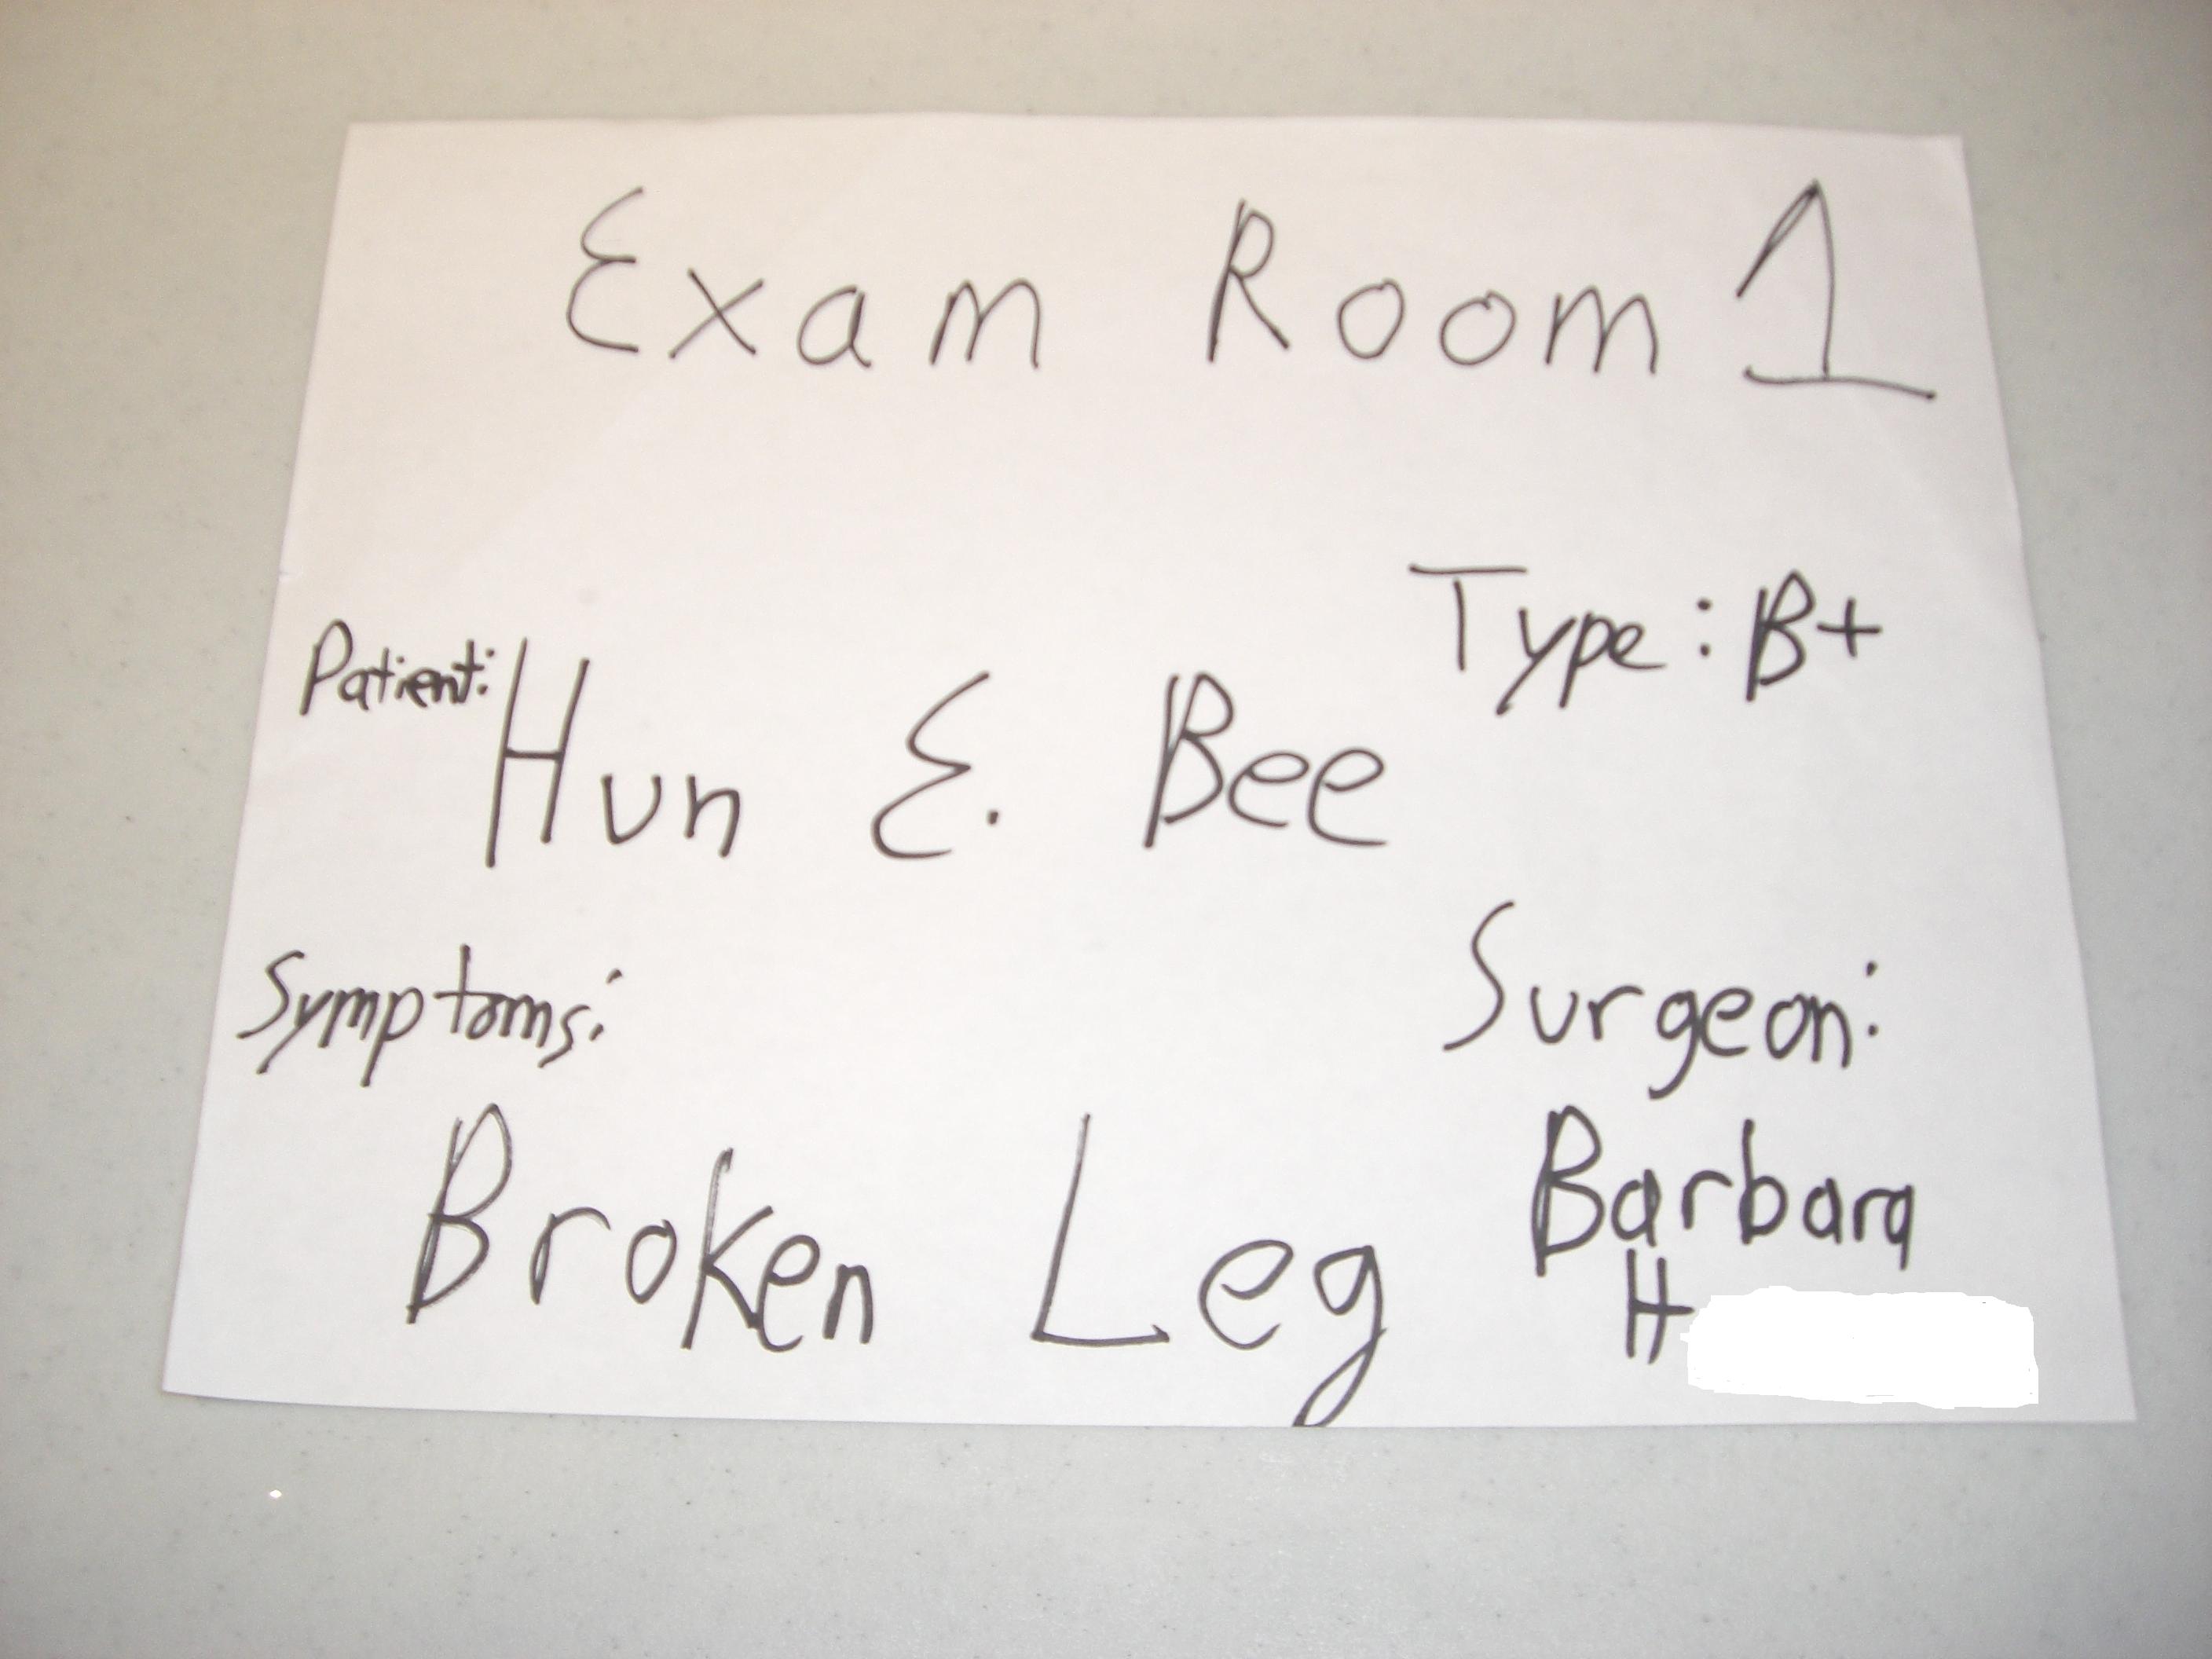 Exam Room 1
Type: B+
Patient: Hun E. Bee
Symptoms:
Broken Leg
Surgeon:
Barbara
H